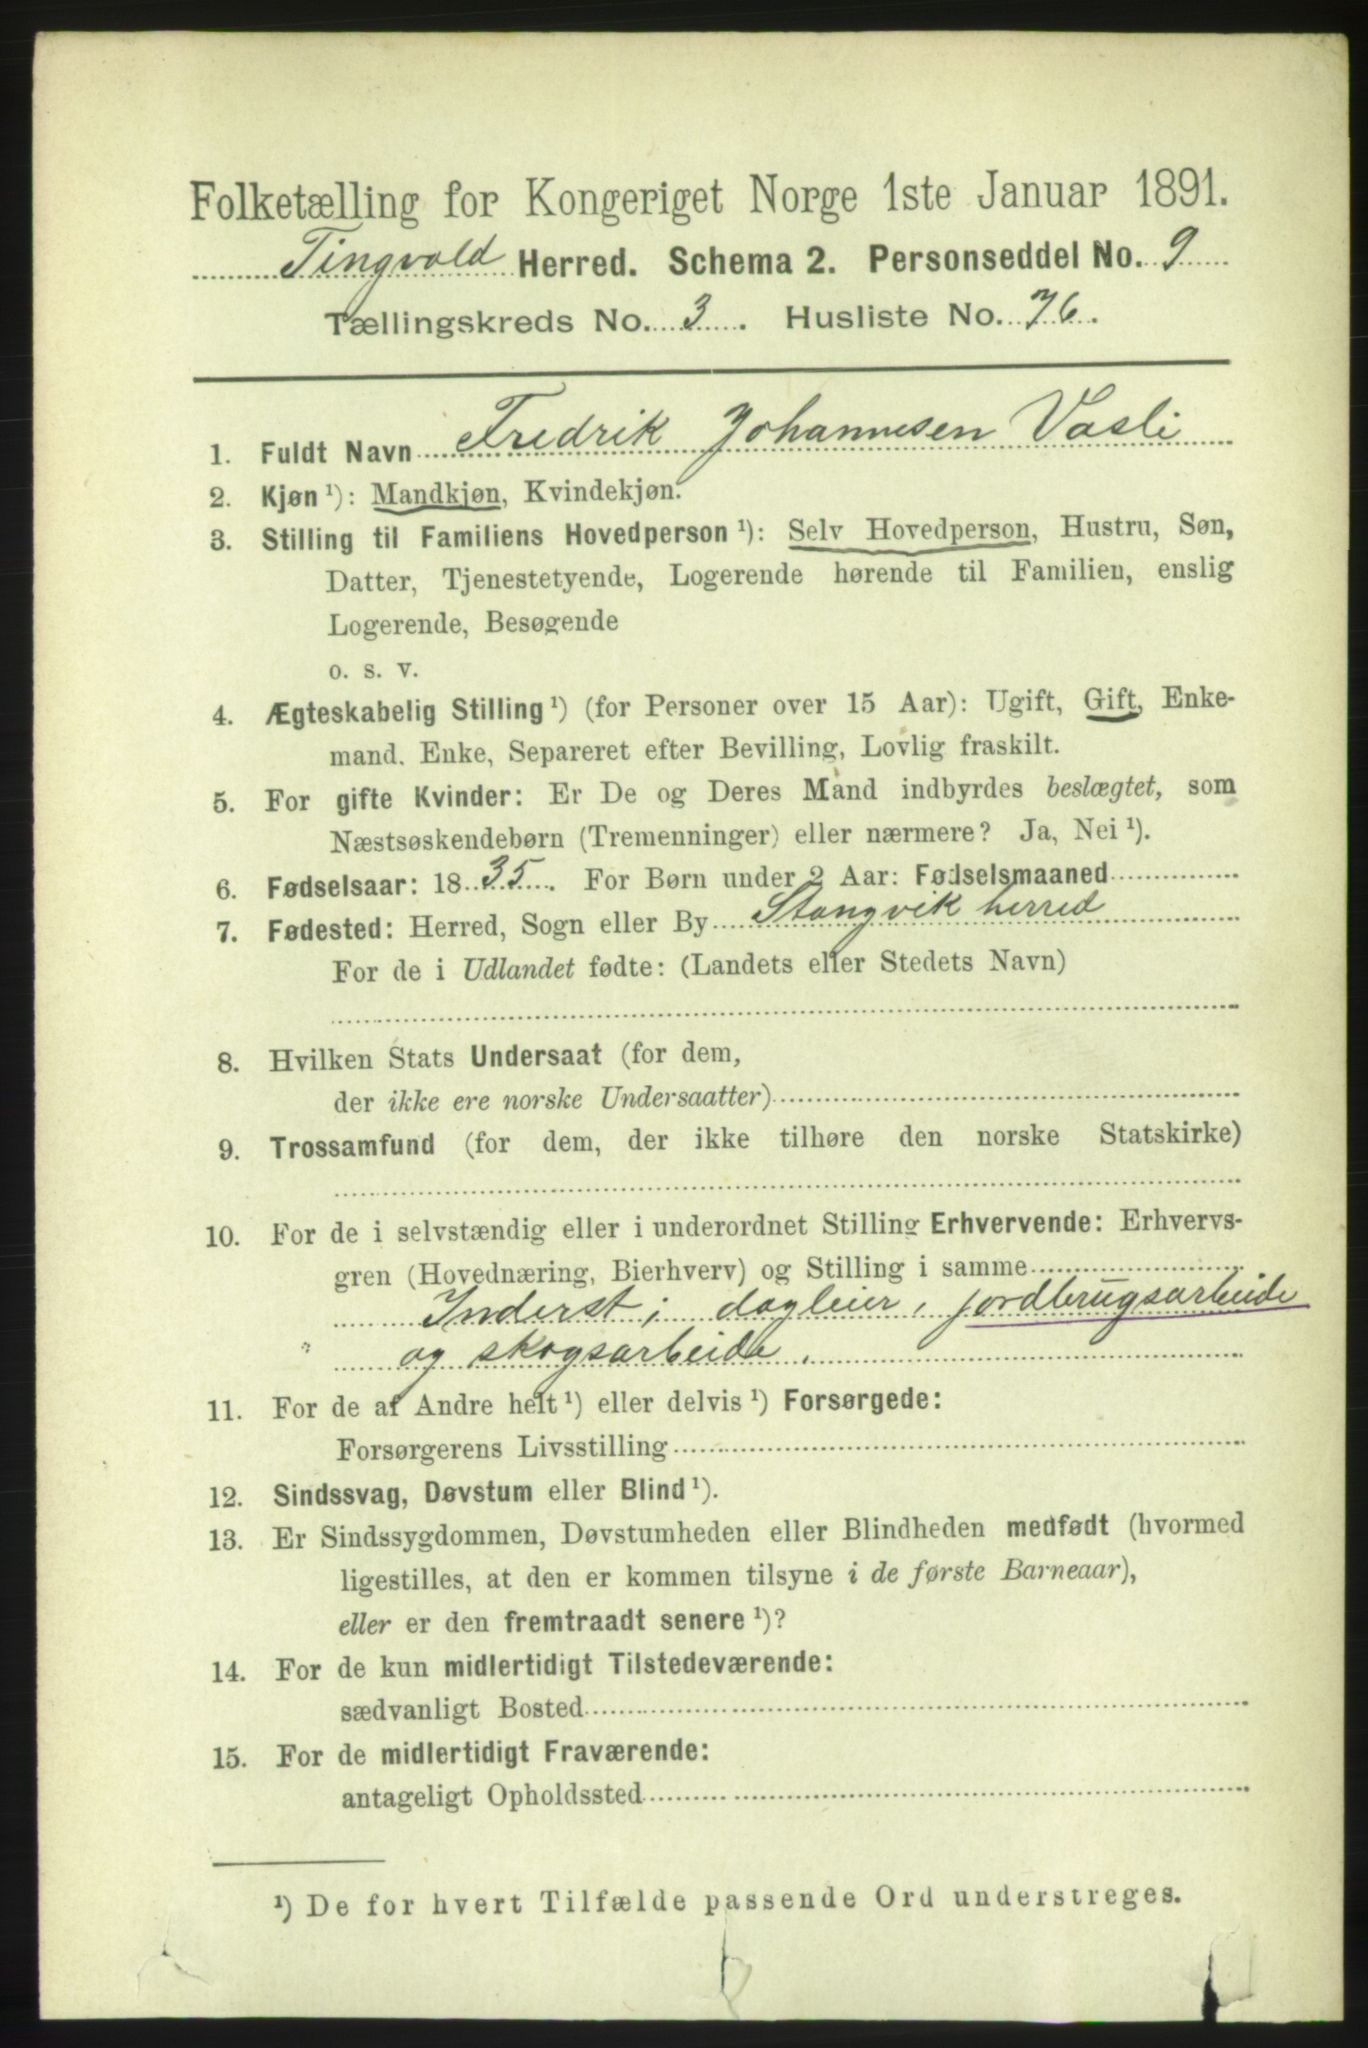 Folketælling for Kongeriget Norge 1ste Januar 1891.
Tingvold Herred. Schema 2. Personseddel No. 9
Tællingskreds No. 3. Husliste No. 76.
1. Fuldt Navn Fredrik Johannesen Vasli
2. Kjøn ¹): Mandkjøn, Kvindekjøn.
3. Stilling til Familiens Hovedperson ¹): Selv Hovedperson, Hustru, Søn,
Datter, Tjenestetyende, Logerende hørende til Familien, enslig
Logerende, Besøgende
o. s. v.
4. Ægteskabelig Stilling ¹) (for Personer over 15 Aar): Ugift, Gift, Enke-
mand. Enke, Separeret efter Bevilling, Lovlig fraskilt.
5. For gifte Kvinder: Er De og Deres Mand indbyrdes beslægtet, som
Næstsøskendebørn (Tremenninger) eller nærmere? Ja, Nei ¹).
6. Fødselsaar: 1835. For Børn under 2 Aar: Fødselsmaaned
7. Fødested: Herred, Sogn eller By Stangvik herred
For de i Udlandet fødte: (Landets eller Stedets Navn)
8. Hvilken Stats Undersaat (for dem,
der ikke ere norske Undersaatter)
9. Trossamfund (for dem, der ikke tilhøre den norske Statskirke)
10. For de i selvstændig eller i underordnet Stilling Erhvervende: Erhvervs-
gren (Hovednæring, Bierhverv) og Stilling i samme
Inderst; dagleier, jordbrugsarbeide
og skogsarbeide.
11. For de af Andre helt ¹) eller delvis ¹) Forsørgede:
Forsørgerens Livsstilling
12. Sindssvag, Døvstum eller Blind ¹).
13. Er Sindssygdommen, Døvstumheden eller Blindheden medfødt (hvormed
ligestilles, at den er kommen tilsyne i de første Barneaar),
eller er den fremtraadt senere ¹)?
14. For de kun midlertidigt Tilstedeværende:
sædvanligt Bosted
15. For de midlertidigt Fraværende:
antageligt Opholdssted
¹) De for hvert Tilfælde passende Ord understreges.